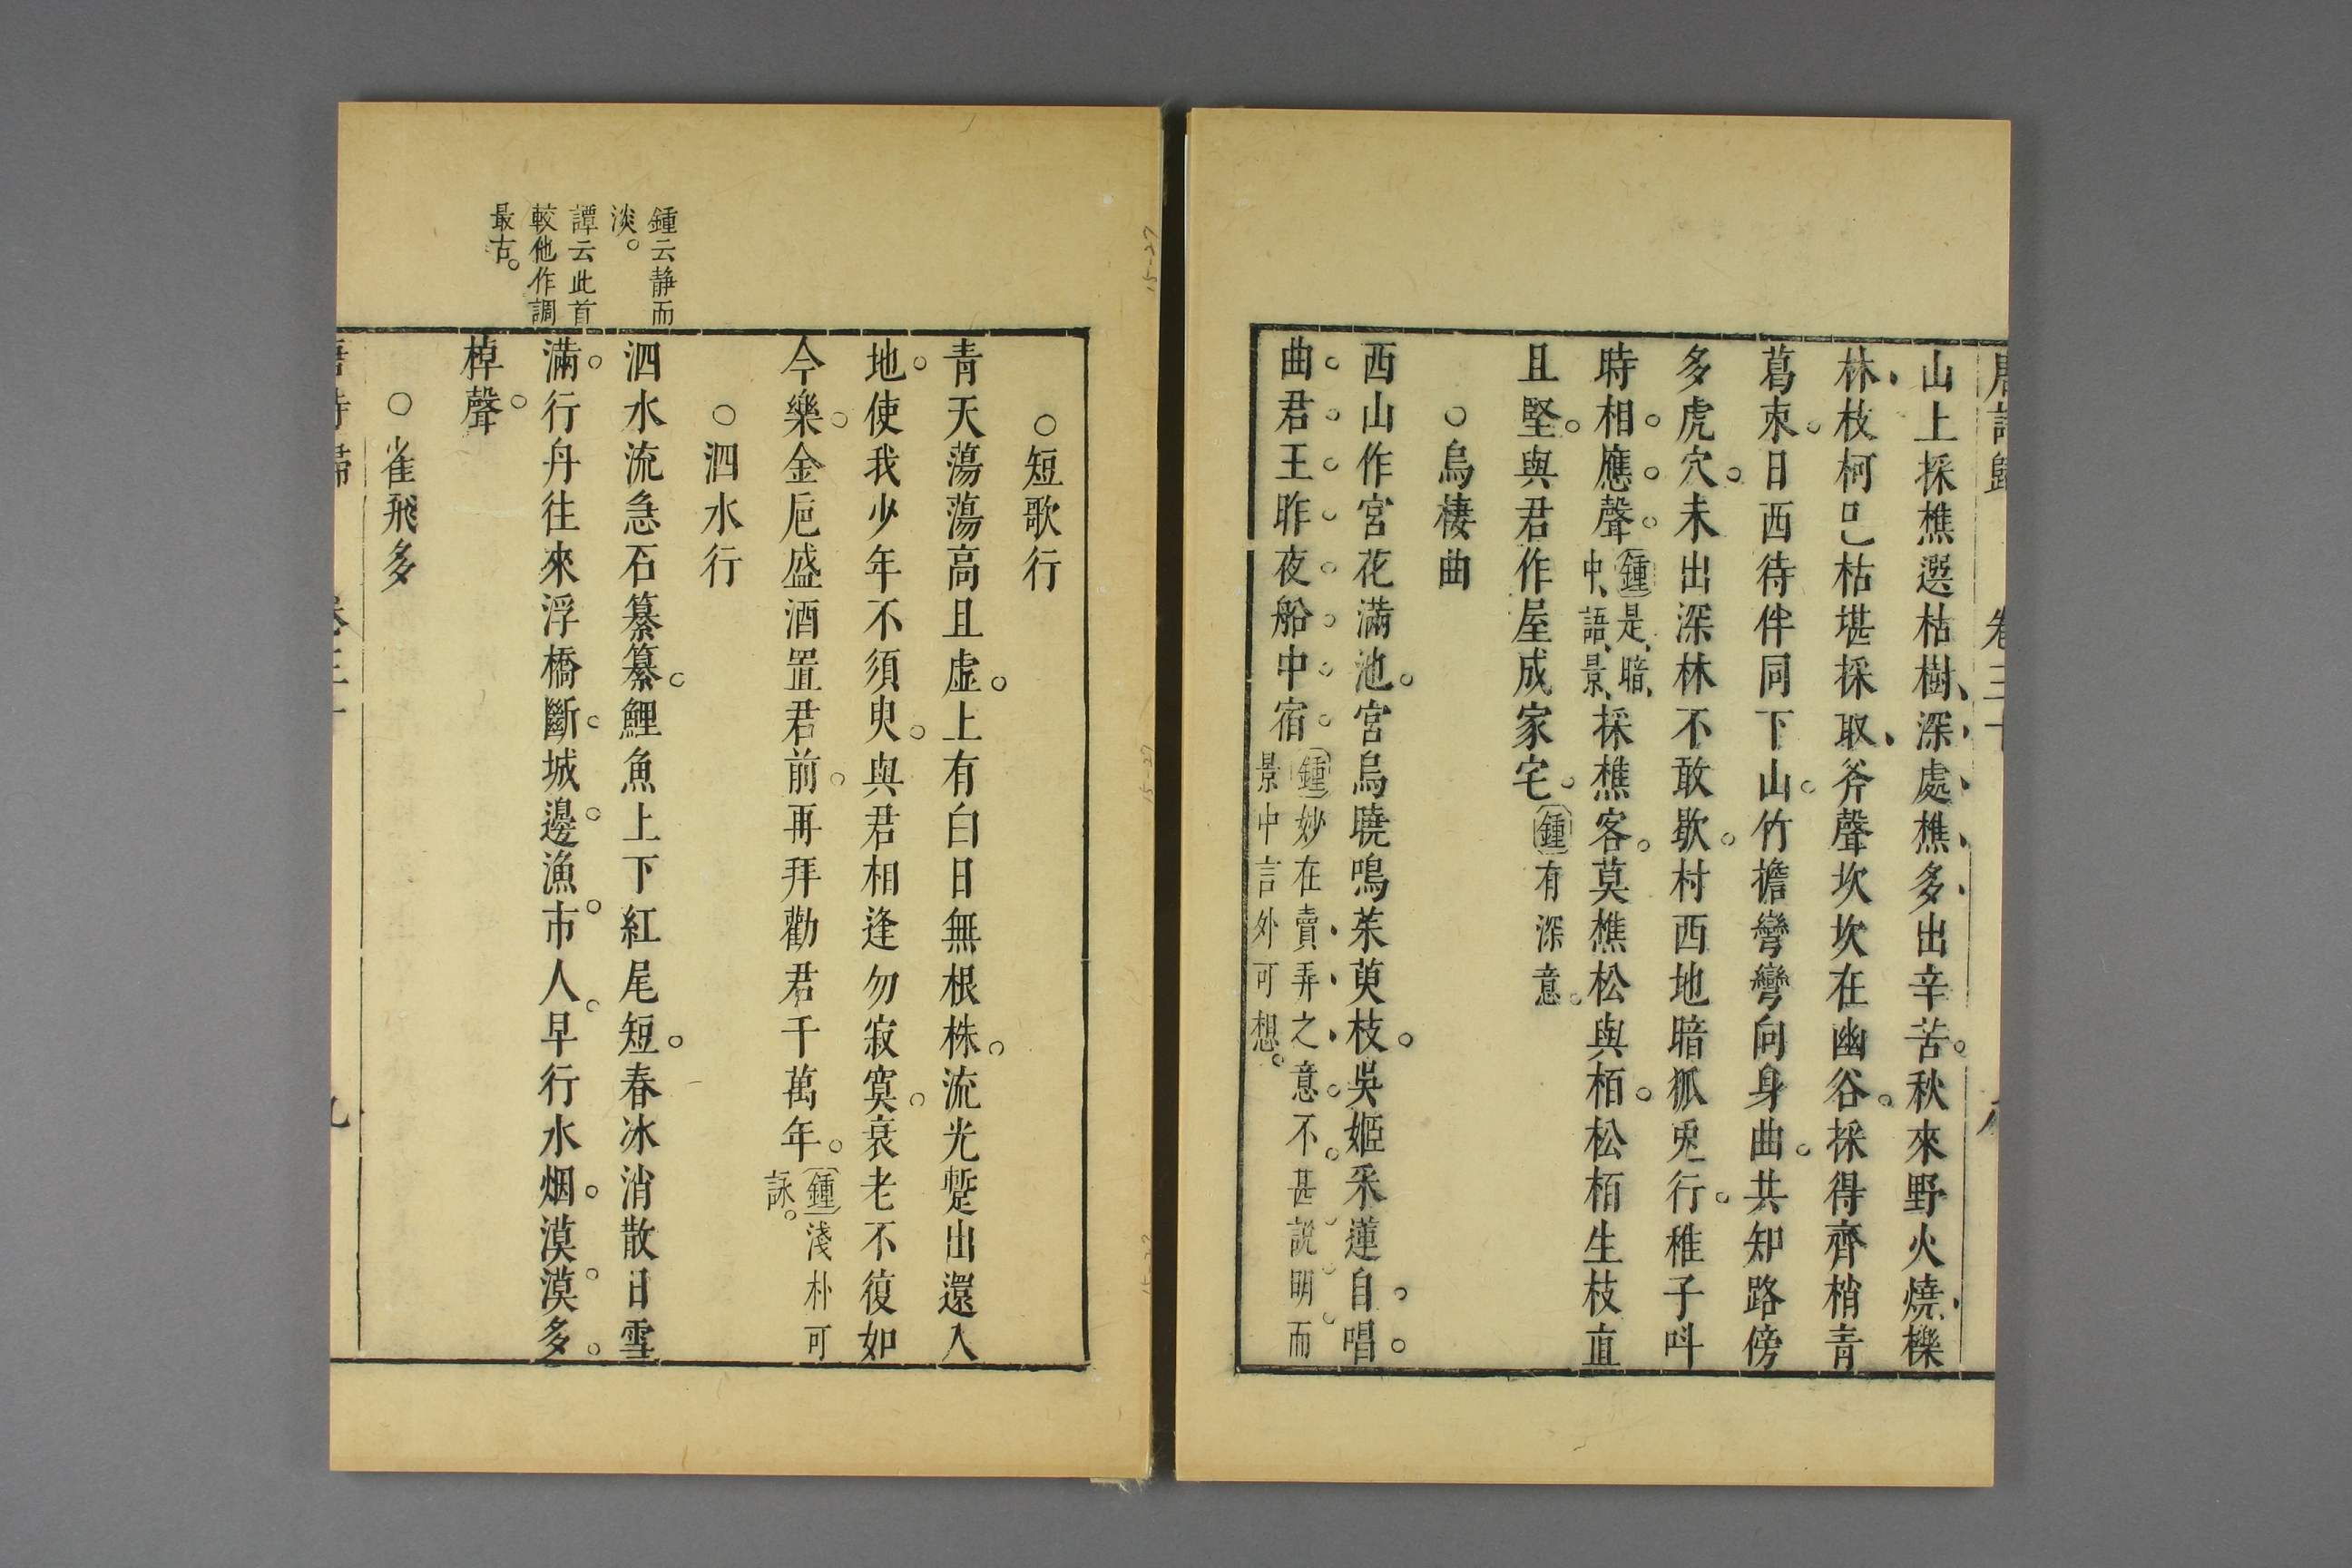 唐詩歸 卷三十 八
山上採樵選枯樹深處樵多出辛苦秋來野火燒櫟
林枝柯已枯堪採取斧聲坎坎在幽谷採得齊梢青
葛束日西待伴同下山竹擔彎彎向身曲共知路傍
多虎穴未出深林不敢歇村西地暗狐兎行稚子叫
時相應聲鍾是暗
中語景採樵客莫樵松與栢松栢生枝直
且堅與君作屋成家宅鍾有深意
○烏棲曲
西山作宮花滿池宮烏曉鳴茱萸枝吳姬采蓮自唱
曲君王昨夜船中宿鍾妙在賣弄之意不甚說明而
景中言外可想
○短歌行
青天蕩蕩高且虛上有白日無根株流光蹔出還入
地使我少年不須臾與君相逢勿寂寞衰老不復如
今樂金巵盛酒置君前再拜勸君千萬年鍾淺朴可
詠
○泗水行
鍾云静而
淡
譚云此首
較他作調
最古
泗水流急石纂纂鯉魚上下紅尾短春冰消散日雪
滿行舟往來浮橋斷城邊漁市人早行水烟漠漠多
棹聲
○雀飛多
唐詩歸 卷三十 九